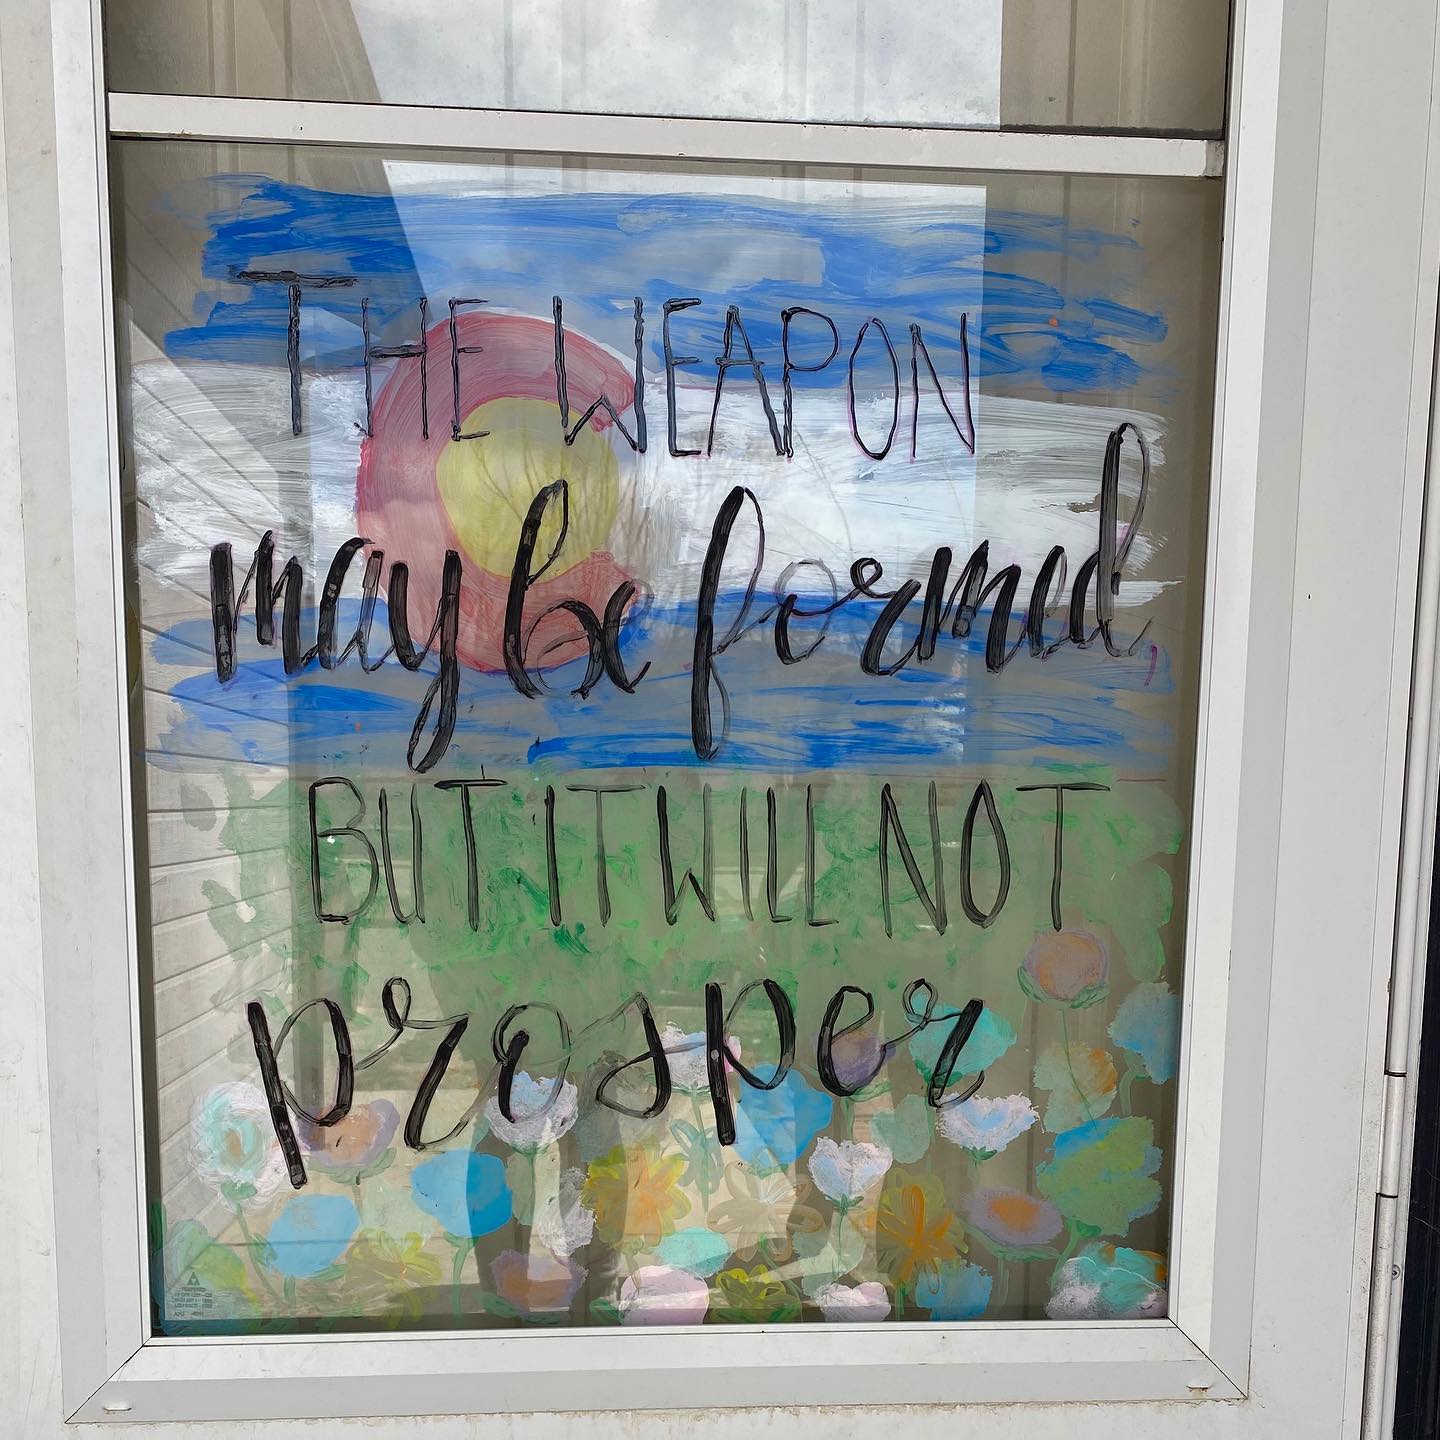 THE WEAPON
may be formed,
BUT IT WILL NOT
prosper